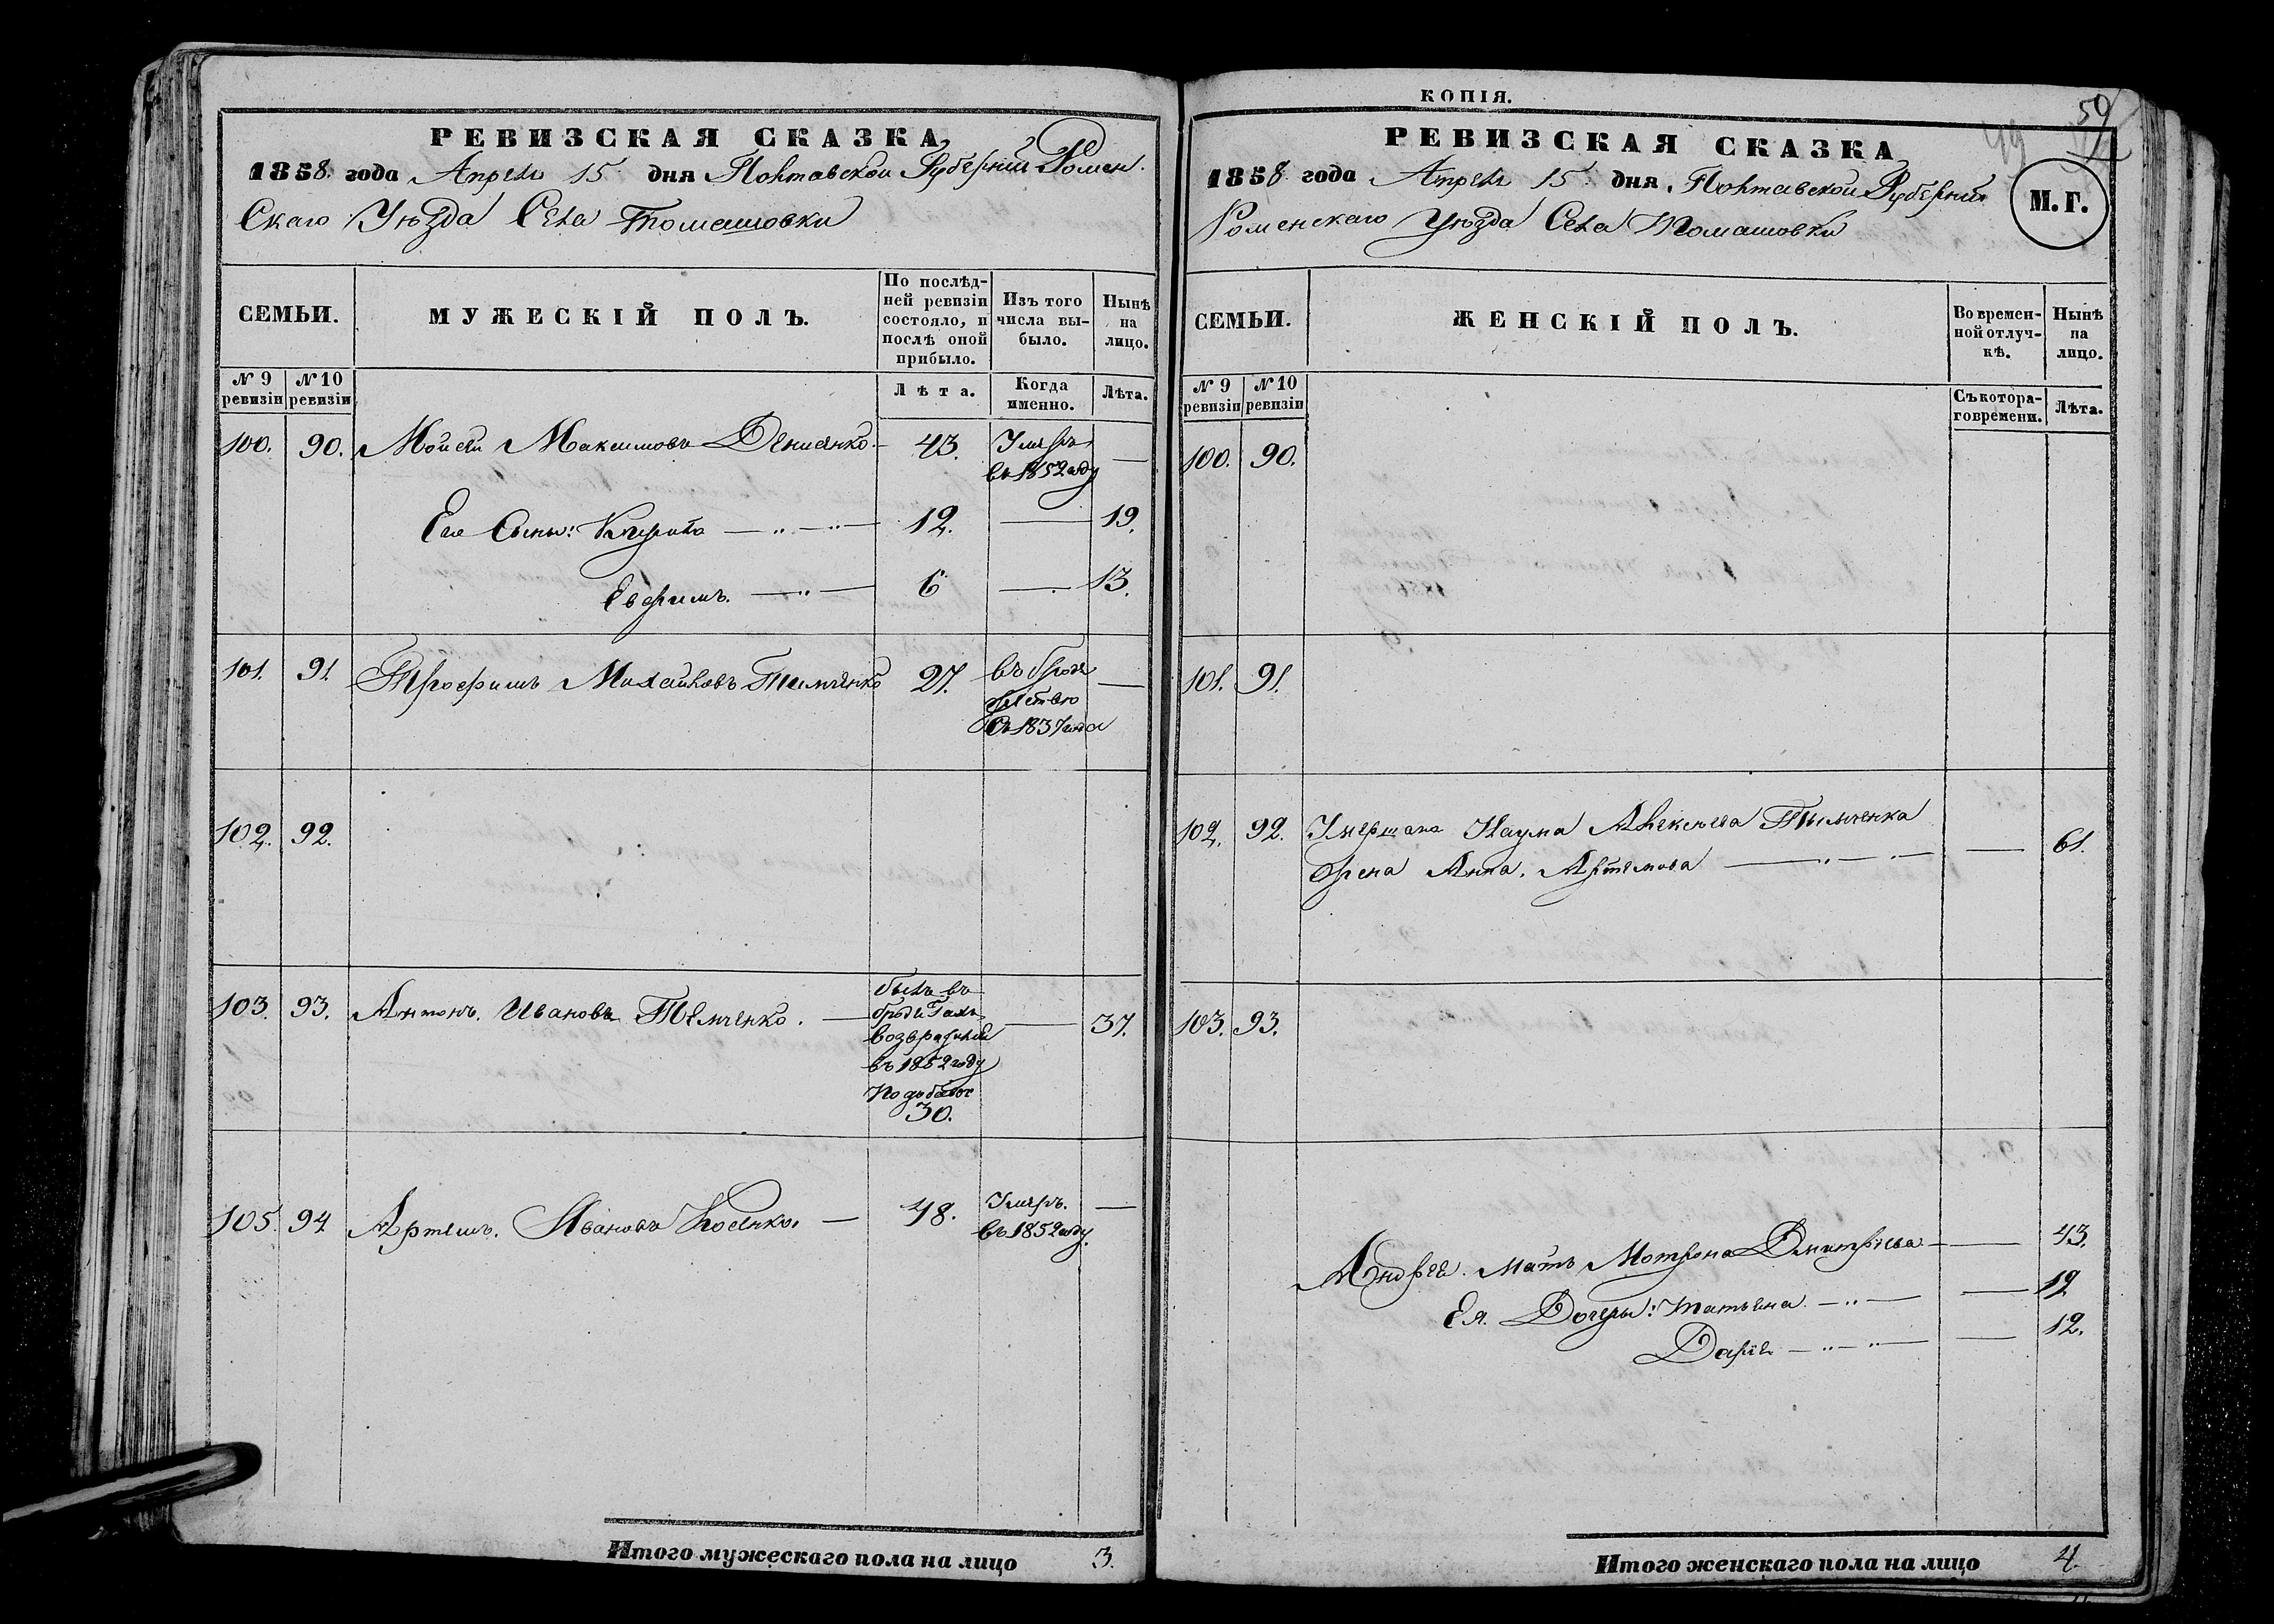 РЕВИЗСКАЯ СКАЗКА
1858. года Апреля 15 дня Полтавской Губернии Ромен.
Скаго Уезда Села Томашовки
СЕМЬИ.
МУЖЕСКІЙ ПОЛЪ.
По послѣд-
ней ревизіи
состояло, и
послѣ оной
прибыло.
Изъ того
числа вы-
было.
Нынѣ
на
лицо.
№ 9 ревизіи
№ 10 ревизіи
Лѣта.
Когда
именно.
Лѣта.
100. 90. Мойсей Максимовъ Денисенко. 43. Умеръ —
въ 1852 году
Его Сыны: Кирило — „ — „ — 12. — 19.
Евфимъ. — „ — 6 — 13.
101. 91. Трофимъ Михайловъ Тимченко 27. въ бродя —
жествѣ
съ 1837 года
102. 92.
103. 93. Антонъ. Ивановъ Тимченко. — былъ въ
бродягахъ — 37.
возвращенъ
въ 1852 году
30.
105. 94 Артемъ. Ивановъ Косенко. — 48. Умеръ. —
въ 1852 году.
Итого мужескаго пола на лицо 3.
КОПІЯ.
59
49
РЕВИЗСКАЯ СКАЗКА
1858 года Апреля 15 дня Полтавской Губерніи
Роменскаго Уѣзда Села Томашовки
М. Г.
СЕМЬИ.
ЖЕНСКІЙ ПОЛЪ.
Во времен-
ной отлуч-
кѣ.
Нынѣ
на
лицо.
№ 9 ревизіи
№ 10 ревизіи
Съ котора-
го времени.
Лѣта.
100. 90.
101. 91.
102. 92. Умершаго Наума Алексѣева Тимченка
Жена Анна. Артемова — „ — „ — — 61.
103. 93.
Андрея. Мать Мотрона Дмитріева — — 43.
Ея. Дочери: Татьяна — „ — — 19
Дарія — „ — „ — — 12.
Итого женскаго пола на лицо 4.